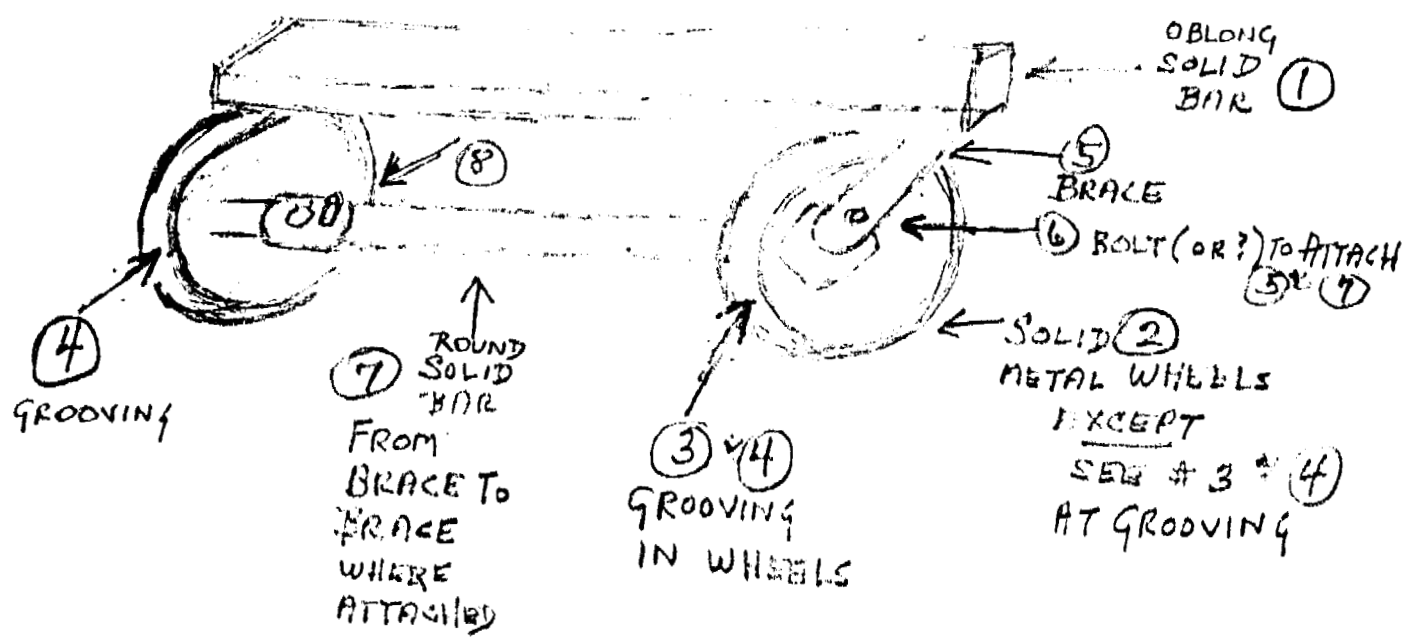 OBLONG
SOLID
BAR 1
8
5
BRACE
6 BOLT (OR?) TO ATTACH
5 & 7
4
GROOVING
7 ROUND
SOLID
BAR
FROM
BRACE TO
BRACE
WHERE
ATTACHED
3 & 4
GROOVING
IN WHEELS
SOLID 2
METAL WHEELS
EXCEPT
SEE # 3 & 4
AT GROOVING